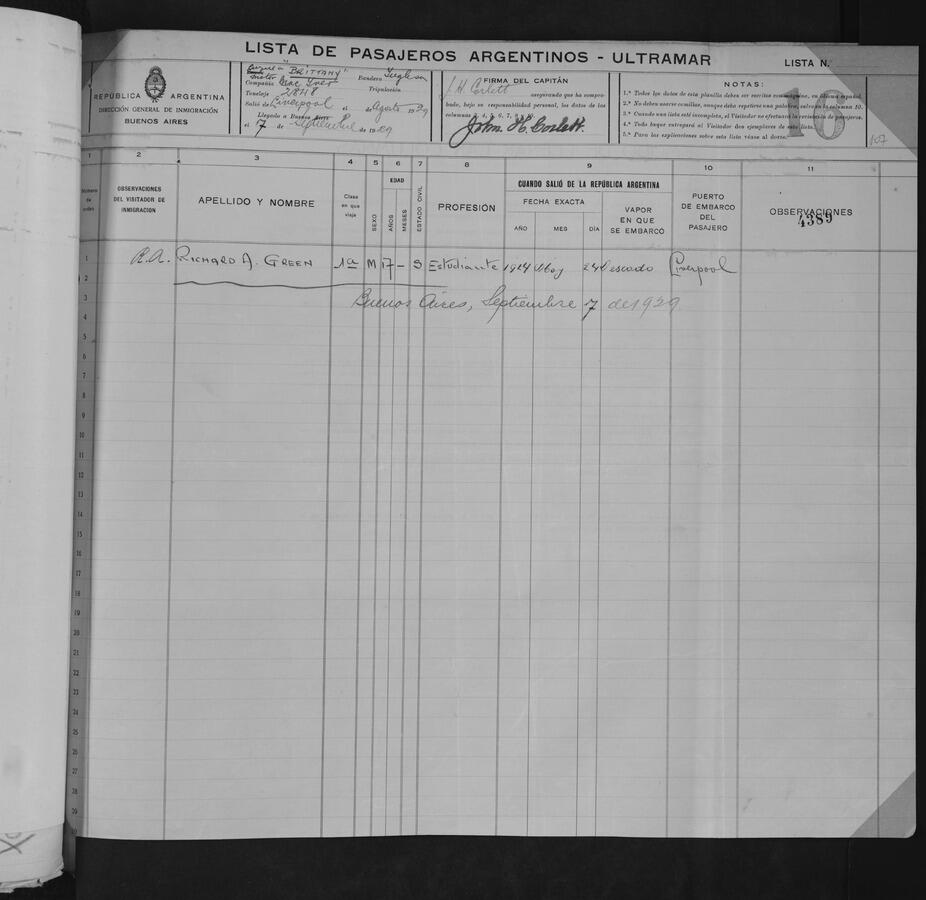 LISTA DE PASAJEROS ARGENTINOS - ULTRAMAR
LISTA N.
REPÚBLICA ARGENTINA
DIRECCIÓN GENERAL DE INMIGRACIÓN
BUENOS AIRES
"BRITTANY" Bandera Inglesa
Compañía Tripulación
Toneleje
Salió de Liverpool el de Agosto 1929
Llegado a Buenos Aires
el 7 de Septiembre de 1929
FIRMA DEL CAPITÁN
J. H. Corlett asegurando que ha compro-
bado, bajo su responsabilidad personal, los datos de las
columnas 3, 4, 5, 6, 7, 8
John H. Corlett
NOTAS:
1.ª Todos los datos de esta planilla deben ser escritos en idioma español.
2.ª No deben usarse comillas, aunque deba repetirse una palabra, salvo en la columna 10.
3.ª Cuando una lista esté incompleta, el Visitador no efectuará la revisación de pasajeros.
4.ª Todo buque entregará al Visitador dos ejemplares de esta lista.
5.ª Para las explicaciones sobre esta lista véase al dorso.
10
107
1 2 3 4 5 6 7 8 9 10 11
Número de orden
OBSERVACIONES DEL VISITADOR DE INMIGRACION
APELLIDO Y NOMBRE
Clase en que viaja
SEXO
EDAD
AÑOS
MESES
ESTADO CIVIL
PROFESIÓN
CUANDO SALIÓ DE LA REPÚBLICA ARGENTINA
FECHA EXACTA
AÑO MES DÍA
VAPOR EN QUE SE EMBARCÓ
PUERTO DE EMBARCO DEL PASAJERO
OBSERVACIONES
4389
1 R.A. RICHARD A. GREEN 1a M 17 - S Estudiante 1924 24 Deseado Liverpool
2
3 Buenos Aires, Septiembre 7 de 1929
4
5
6
7
8
9
10
11
12
13
14
15
16
17
18
19
20
21
22
23
24
25
26
27
28
29
30